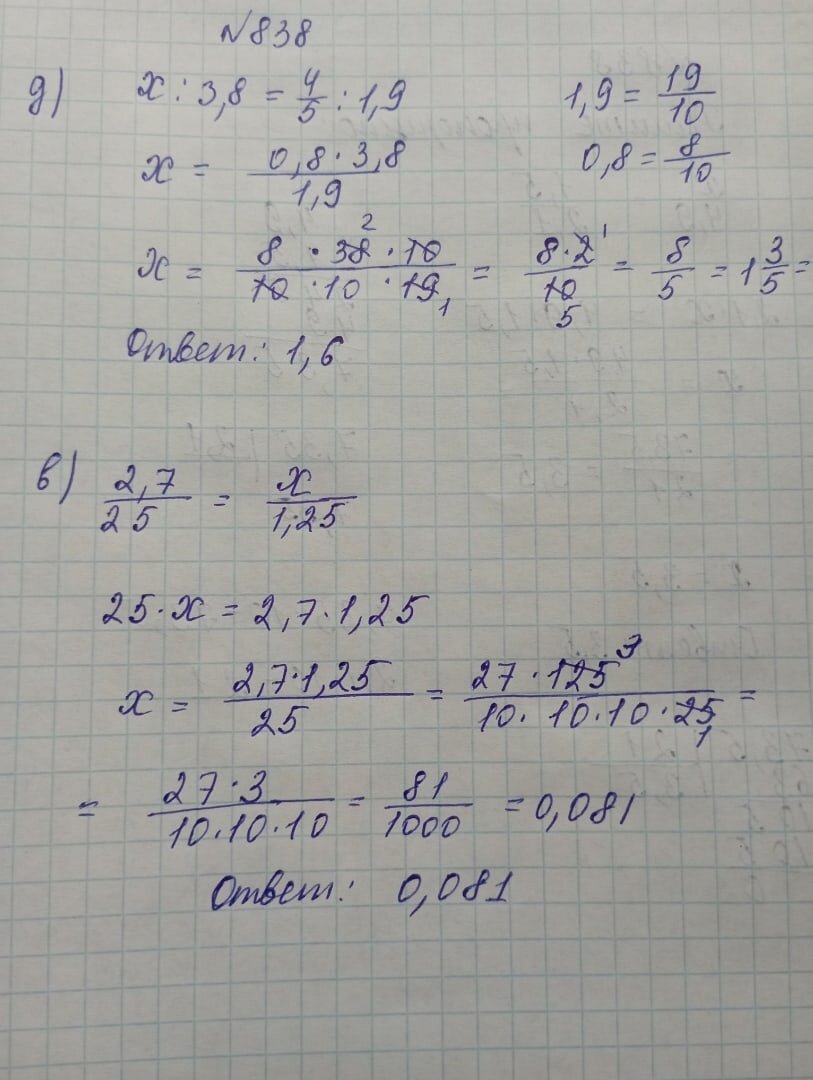 №838
д) x : 3,8 = 4/5 : 1,9 1,9 = 19/10
x = 0,8 · 3,8 / 1,9 0,8 = 8/10
x = 8 · 38 · 10 / 10 · 10 · 19 = 8 · 2 / 10 = 8/5 = 1 3/5 =
Ответ: 1,6
в) 2,7/25 = x/1,25
25 · x = 2,7 · 1,25
x = 2,7 · 1,25 / 25 = 27 · 125 / 10 · 10 · 10 · 25 =
= 27 · 3 / 10 · 10 · 10 = 81/1000 = 0,081
Ответ: 0,081